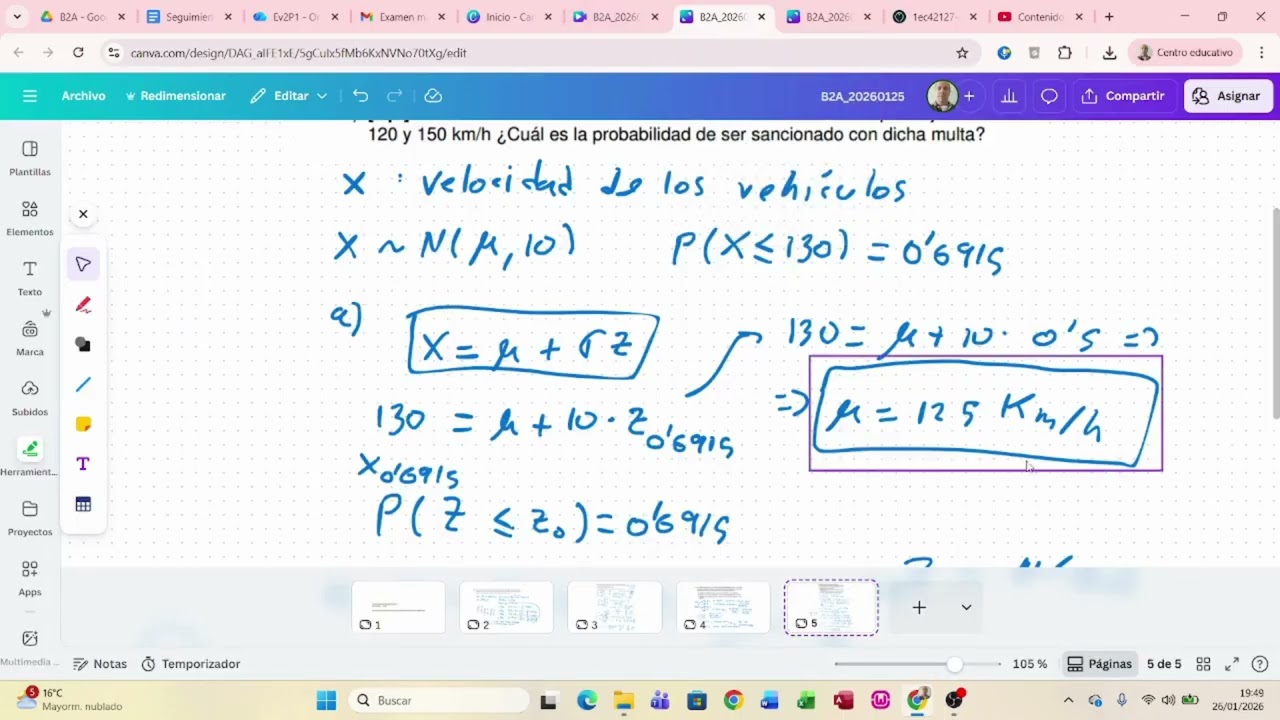 B2A - Goo
Seguimien
Ev2P1 - O
Examen m
Inicio - Ca
B2A_2026
B2A_2026
B2A_2026
1ec42127-
Contenido
canva.com/design/DAG_alFE1xE/5gCuIx5fMb6KxNVNo70tXg/edit
Centro educativo
Archivo
Redimensionar
Editar
B2A_20260125
Compartir
Asignar
Plantillas
Elementos
Texto
Marca
Subidos
Herramient...
Proyectos
Apps
Multimedia ...
120 y 150 km/h ¿Cuál es la probabilidad de ser sancionado con dicha multa?
X : velocidad de los vehículos
X ~ N(μ, 10) P(X ≤ 130) = 0'6915
a) X = μ + σ z 130 = μ + 10 · 0's =>
130 = μ + 10 · z0'6915 => μ = 125 Km/h
x0'6915
P( Z ≤ z0 ) = 0'6915
1
2
3
4
5
Notas
Temporizador
105 %
Páginas
5 de 5
5
16°C
Mayorm. nublado
Buscar
19:49
26/01/2026